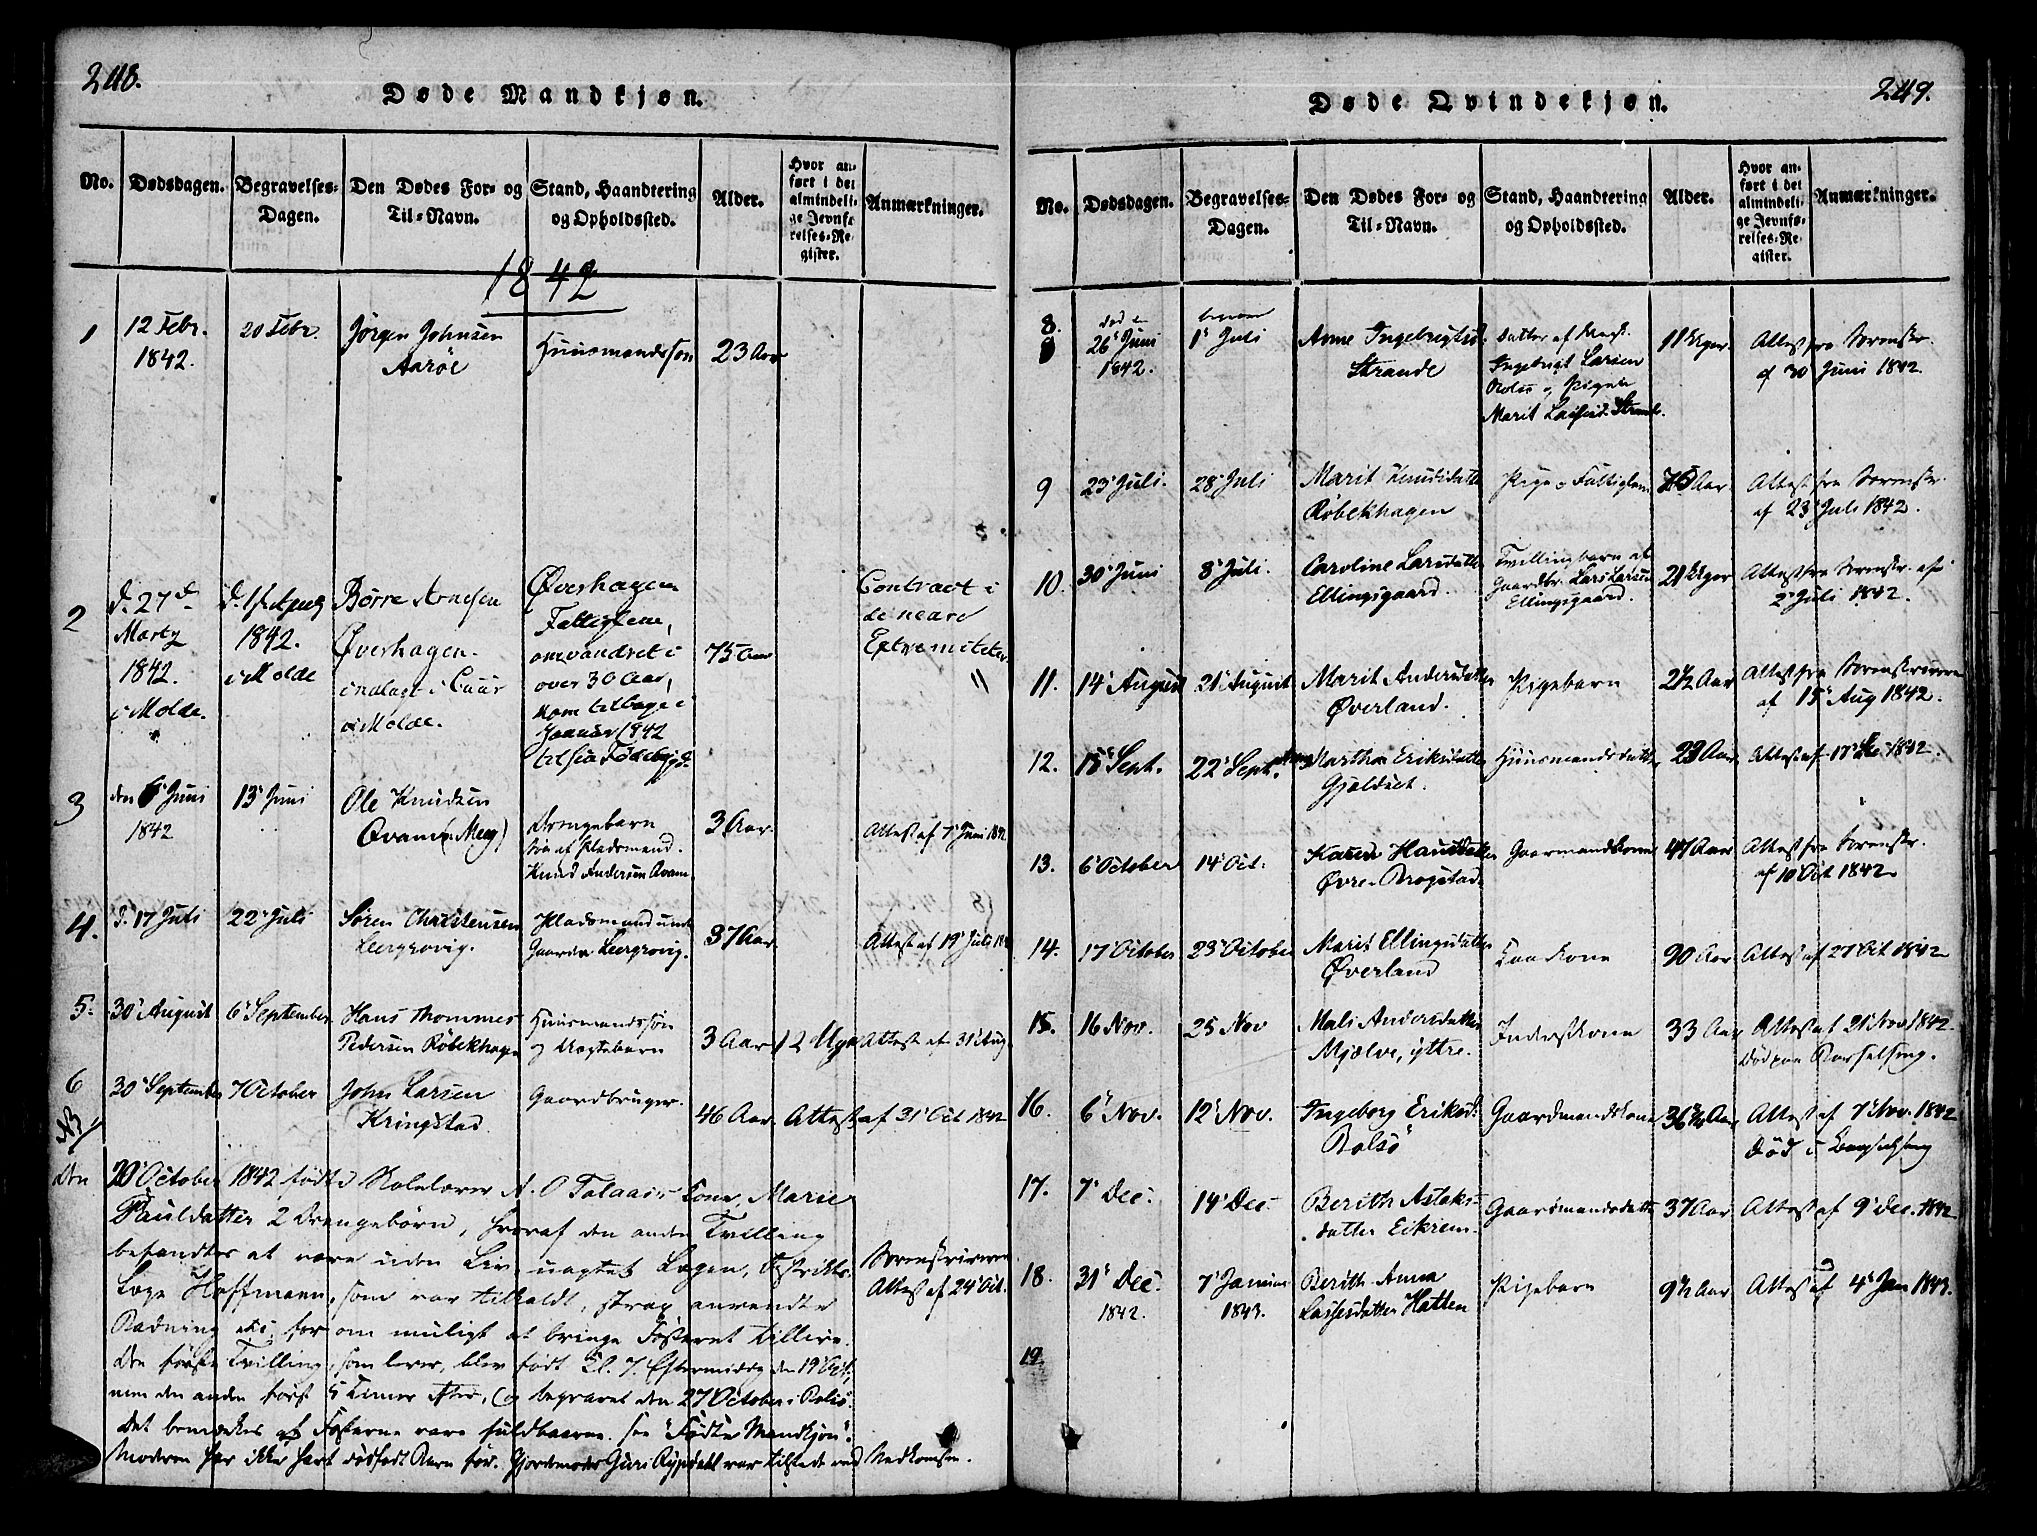 248.
Døde Mandkjøn.
No.
Dødsdagen.
Begravelses-
Dagen.
Den Dødes For- og
Til-Navn.
Stand, Haandtering
og Opholdssted.
Alder.
Hvor an-
ført i det
almindeli-
ge Jevnfø-
relses-Re-
gister.
Anmærkninger.
1842
1
12 Febr.
1842.
20 Febr.
Jørgen Johnsen
Aaröe
Huusmandssøn
23 Aar
2
d. 27d
Marty
1842.
i Molde.
1842.
i Molde
Börre Arnesen
Øverhagen
indlagt i Cuur
i Molde.
Øverhagen
Fattiglem,
omvandret i
over 30 Aar,
kom tilbage i
Januar 1842
til sin Fødebygd.
75 Aar
Contract i
de neare
Extremiteter
3
den 6 Juni
1842
13 Juni
Ole Knudsen
Qvam (Meeg)
Drengebarn
Søn af Pladsmand
Knud Andersen Qvam
3 Aar.
Attest af 7 Juni 1842
4.
d. 17 Juli
22 Juli
Søren Christensen
Leergrovig.
Pladsmand under
Gaarden Leergrovig.
37 Aar
Attest af 19 Juli
5.
30 August
6 September
Hans Thommes
Pedersen Röbekhagen
Huusmandssøn
og Vægtebarn
3 Aar 12 Uger
Attest af 31 Aug
6
30 September
7 October
John Larsen
Kringstad
Gaardbruger.
46 Aar.
Attest af 31 Oct 1842
NB/
Den 20 October 1842 fødte Skolelærer A. O Talaas's Kone, Marie
Pauldatter 2 Drengebörn, hvoraf den anden Tvilling
befandtes at være uden Liv, uagtet Lægen, Distrikts-
Læge Hoffmann, som var tilkaldt, strax anvendte
Badning etc. for om muligt at bringe Fosteret tillive.
Den første Tvilling, som lever, blev født Kl. 7 Eftermiddag den 19 Oct,
men den anden først 5 Timer efter, og begravet den 27 October i Bolsö.
Det bemærkes at Fosterne vare fuldbaarne. see "Fødte Mandkjön".
Moderen har ikke havt dødfødt Barn før. Gjordemoder Guri Rypdahl var tilstede ved Nedkomsten.
Sorenskriveren
Attest af 24 Oct.
249.
Døde Qvindekjøn.
No.
Dødsdagen.
Begravelses-
Dagen.
Den Dødes For- og
Til-Navn.
Stand, Haandtering
og Opholdssted.
Alder.
Hvor an-
ført i det
almindeli-
ge Jevnfø-
relses-Re-
gister.
Anmærkninger.
8.
26 Juni
1842.
1 Juli
Anne Ingebrigtsd.
Strande
Datter af
Ingebrigt Larsen
Bolsö og Pigen
Marit Lassesd. Strande.
11 Uger.
Attest fra Sorenskr.
af 30 Juni 1842.
9
23 Juli.
28 Juli
Marit Knudsdatter
Röbekhagen
Pige o Fattiglem
Attest fra Sorenskr.
af 23 Juli 1842.
10.
30 Juni
8 Juli.
Caroline Larsdatter
Ellingsgaard.
Tvillingbarn af
Gaardbr. Lars Larsen
Ellingsgaard.
21 Uger
Attest fra Sorenskr. af
2 Juli 1842.
11.
14 August
21 August
Marit Andersdatter
Øverland.
Pigebarn
2 1/2 Aar
Attest fra Sorenskriveren
af 15 Aug 1842.
12.
15 Sept.
22 Sept.
Martha Eriksdatter
Gjeldset.
Huusmandsdatter
23 Aar
Attest af 17 1842.
13.
6 October
14 Oct.
Karen Hansdatter
Øvre-Brogstad
Gaarmandskone
47 Aar
Attest fra Sorenskr.
af 10 Oct 1842
14.
17 October
23 October
Marit Ellingsdatter
Øverland
Kaarkone
90 Aar
Attest af 27 Oct 1842
15.
16 Nov.
25 Nov
Mali Andersdatter
Mjelve, yttre.
Inderstkone
33 Aar
Attest af 21 Nov 1842.
Död paa Barselseng.
16.
6 Nov.
12 Nov.
Ingeborg Eriksd.
Bolsö
Gaardmandskone
Attest af 7 Nov. 1842
Död i Barselseng
17.
7 Dec.
14 Dec
Berith Aslaks-
datter Eikrem.
Gaardmandsdatter
37 Aar
Attest af 9 Dec. 1842
18.
31 Dec.
1842.
7 Januar
1843.
Berith Anna
Lassesdatter Hatten
Pigebarn
9 1/2 Aar
Attest af 4 Jan 1843.
19.